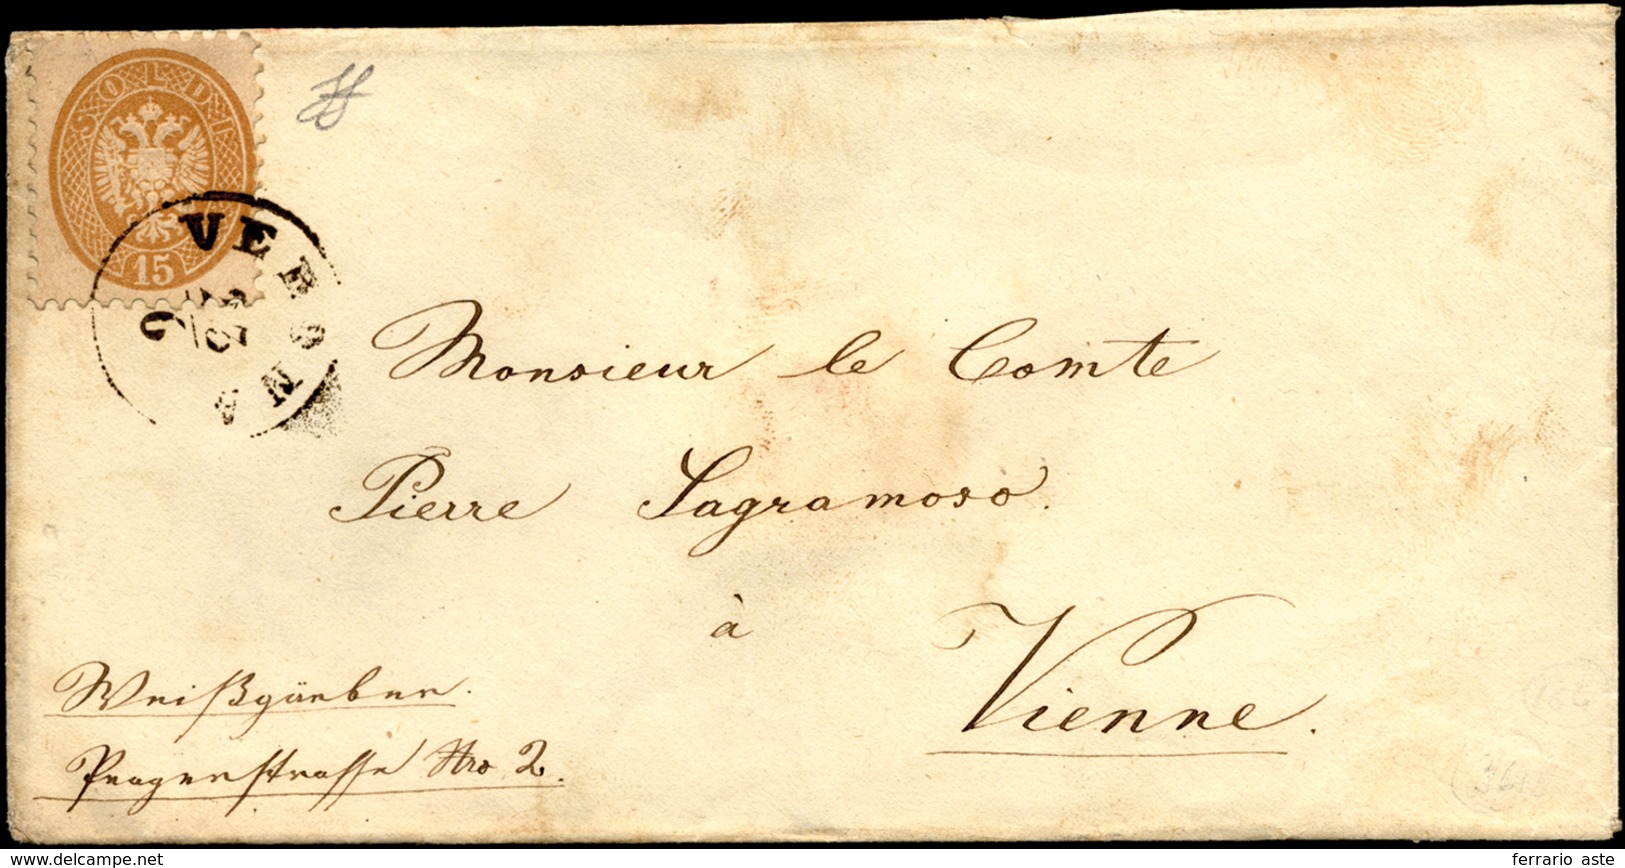 SOLDI
15
VERONA
Monsieur le Comte
Pierre Sagramoso.
à
Vienne.
Weißgärber.
Pragerstrasse Nro 2.
delcampe.net
ferrario aste